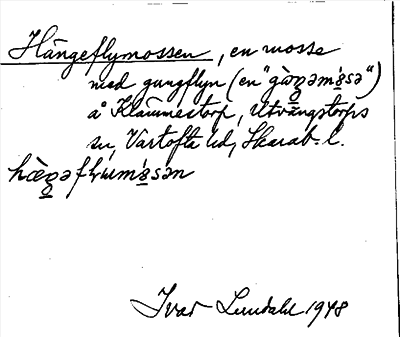 Hängeflymossen, en mosse
med gungflyn (en "gàŋəmɷ́sə")
å Klämmestorp, Utvängstorps
sn, Vartofta hd, Skarab. l.
hæ̀ŋəflyúmɷ́sən
Ivar Lundahl 1948